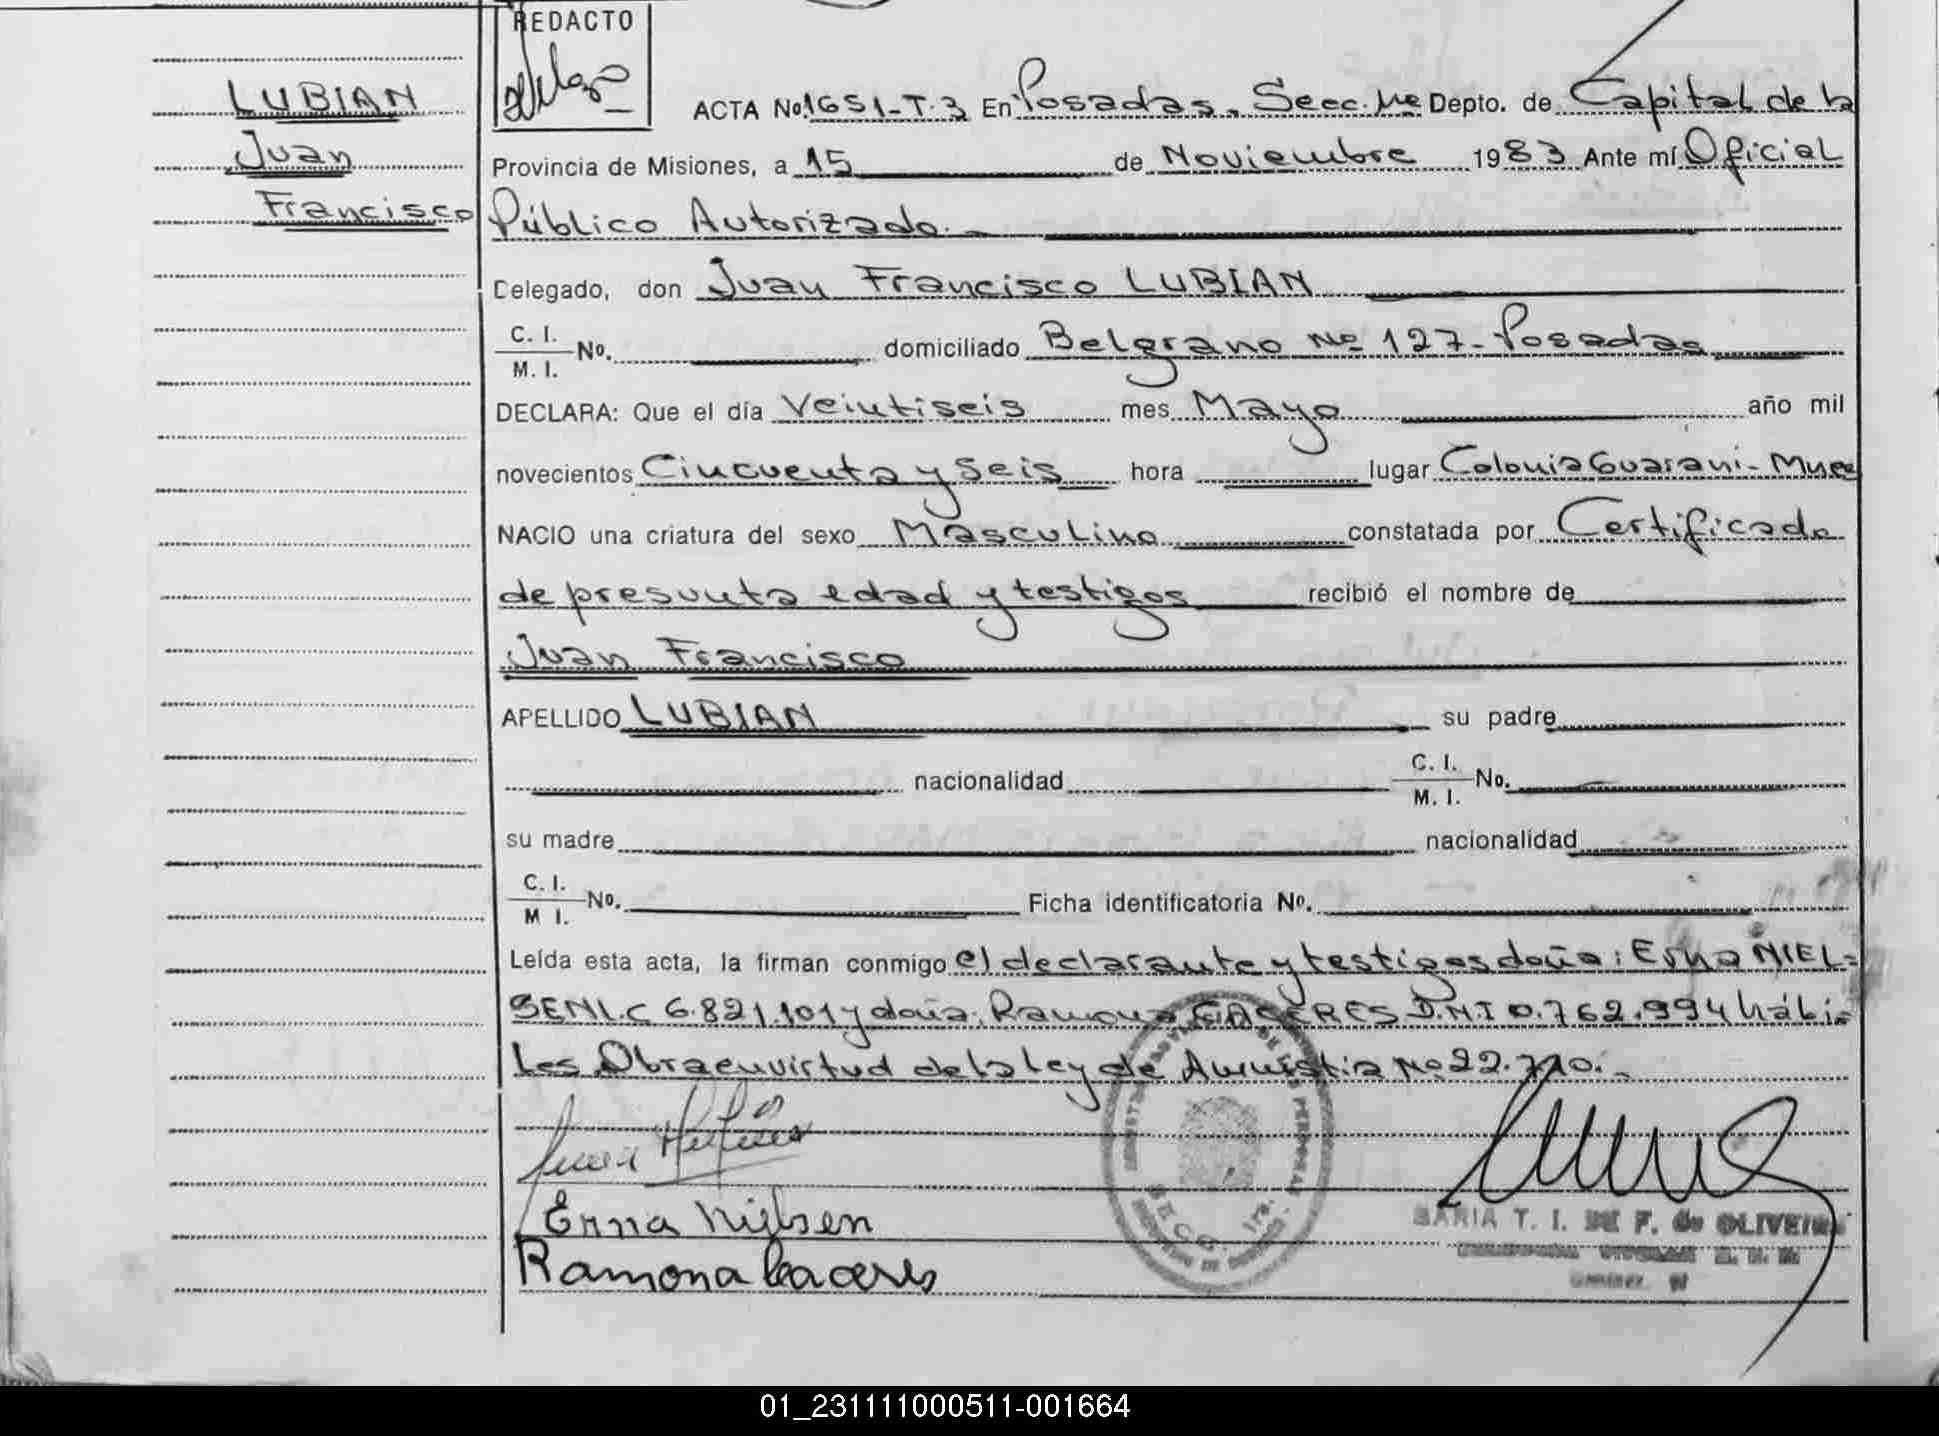 REDACTO
LUBIAN
Juan
Francisco
ACTA No. 1651-T.3 En Posadas, Secc. 1ra Depto. de Capital de la
Provincia de Misiones, a 15 de Noviembre 1983 Ante mí Oficial
Público Autorizado.-
Delegado, don Juan Francisco LUBIAN
C. I.
M. I. No. domiciliado Belgrano Nº 127-Posadas
DECLARA: Que el día Veintiseis mes Mayo año mil
novecientos Cincuenta y Seis hora lugar Colonia Guarani-Mnes
NACIO una criatura del sexo Masculino constatada por Certificado
de presunta edad y testigos recibió el nombre de
Juan Francisco
APELLIDO LUBIAN su padre
nacionalidad C. I.
M. I. No.
su madre nacionalidad
C. I.
M I. No. Ficha identificatoria No.
Leída esta acta, la firman conmigo el declarante y testigos doña: Erna NIEL=
SEN L.C 6.821.101 y doña: Ramona CACERES D.N.I 0.762.994 hábi=
les Obra en virtud de la ley de Amnistia Nº 22.710.-
Erna Nielsen
Ramona Caceres
SECC. 1ra.
MARIA T. I. DE F. de OLIVEIRA
01_231111000511-001664